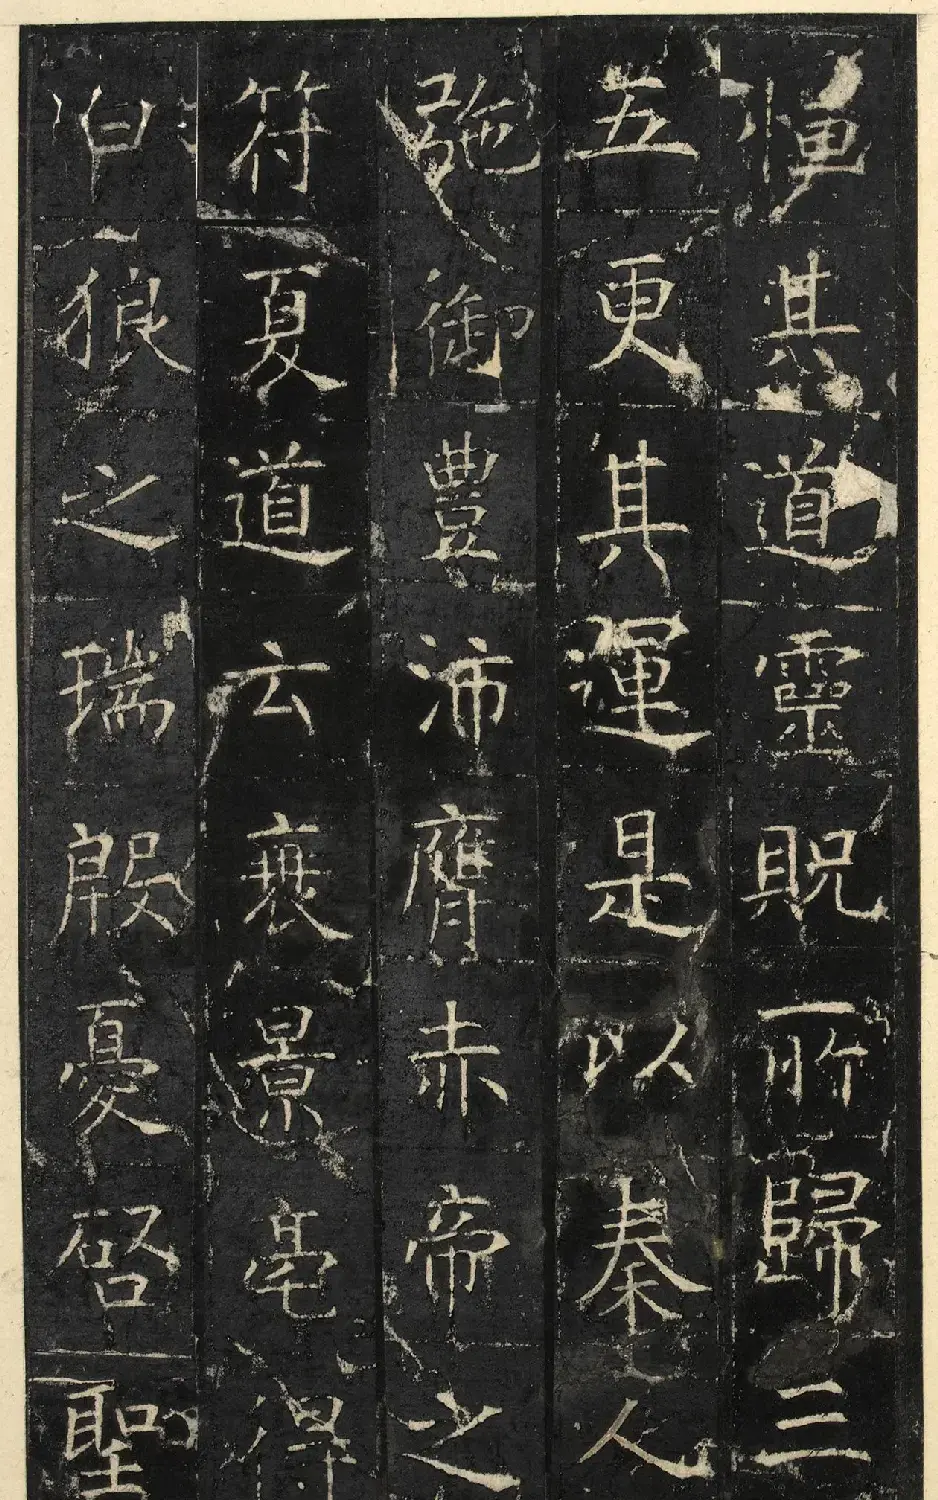 其道靈貺所歸三
五更其運是以秦人
弛御豊沛膺赤帝之
符夏道云衰景亳得
白狼之瑞殷憂啓聖